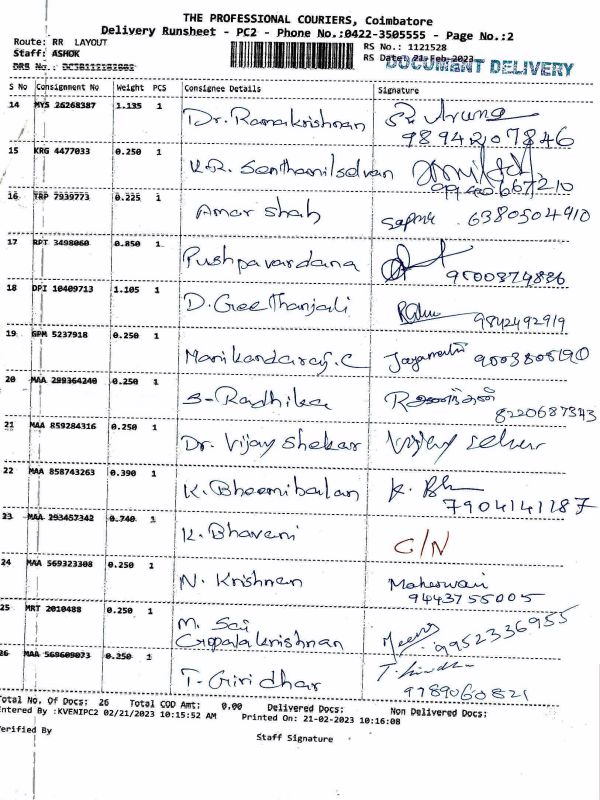 THE PROFESSIONAL COURIERS, Coimbatore
Delivery Runsheet - PC2 - Phone No.:0422-3505555 - Page No.:2
Route: RR LAYOUT
RS No.: 1121528
Staff: ASHOK
RS Date: 21-Feb-2023
DOCUMENT DELIVERY
DRS No.:
S No Consignment No Weight PCS Consignee Details Signature
14 MYS 26268387 1.135 1 Dr. Ramakrishnan
98942107846
15 KRG 4477033 0.250 1 K.R. Senthamilselvan
16 TRP 7939773 0.225 1 Amar Shah 6380504910
17 RPT 3498060 0.850 1 Pushpavardana
9500374836
18 DPI 10409713 1.105 1 D. Geethanjali
9842492919
19 GPM 5237918 0.250 1 Manikandaraj.C Jayamathi
20 MAA 299364240 0.250 1 S-Radhika
8220687343
21 MAA 859284316 0.250 1 Dr. Vijay Shekar
22 MAA 858743263 0.390 1 K. Bheemibalan
7904141187
23 MAA 293457342 0.740 1 K. Bhavani C/N
24 MAA 569323308 0.250 1 N. Krishnan Maheswari
9443755005
25 MRT 2010488 0.250 1 M. Sai
Gopalakrishnan Meena 9952336955
26 MAA 569609073 0.250 1 T. Giridhar
9789060821
Total No. Of Docs: 26 Total COD Amt: 0.00 Delivered Docs: Non Delivered Docs:
Entered By :KVENIPC2 02/21/2023 10:15:52 AM Printed On: 21-02-2023 10:16:08
Verified By
Staff Signature